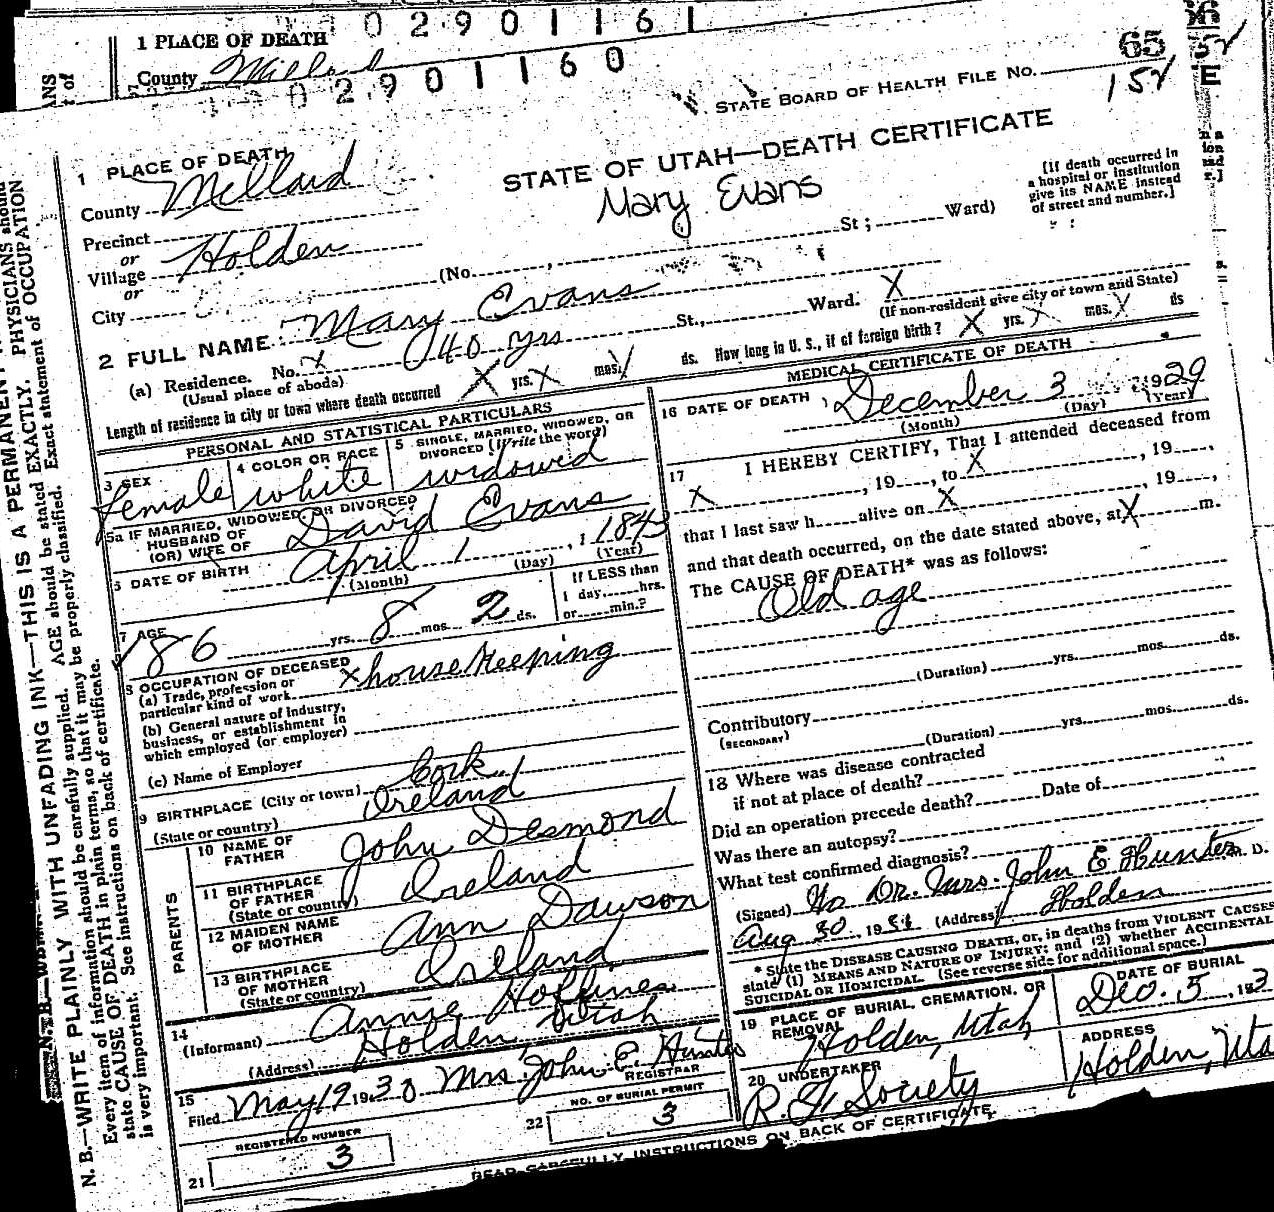 02901161
1 PLACE OF DEATH
County Millard
02901160
65
152
STATE BOARD OF HEALTH FILE No.
1 PLACE OF DEATH
STATE OF UTAH—DEATH CERTIFICATE
County Millard
Mary Evans
[If death occurred in a hospital or institution give its NAME instead of street and number.]
Precinct
or
Village Holden
or
City (No. St; Ward)
2 FULL NAME Mary Evans
(a) Residence. No. x 40 yrs St., Ward. X
(Usual place of abode) (If non-resident give city or town and State)
Length of residence in city or town where death occurred X yrs. X mos. X ds. How long in U. S., if of foreign birth? X yrs. X mos. X ds
PERSONAL AND STATISTICAL PARTICULARS
3 SEX female
4 COLOR OR RACE white
5 SINGLE, MARRIED, WIDOWED, OR DIVORCED (Write the word) widowed
5a IF MARRIED, WIDOWED OR DIVORCED
HUSBAND OF
(OR) WIFE OF David Evans
6 DATE OF BIRTH April 1, 1843
(Month) (Day) (Year)
7 AGE 86 yrs. 8 mos. 2 ds.
If LESS than 1 day, hrs. or min.?
8 OCCUPATION OF DECEASED
(a) Trade, profession or particular kind of work x housekeeping
(b) General nature of industry, business, or establishment in which employed (or employer)
(c) Name of Employer
9 BIRTHPLACE (City or town) Cork
(State or country) Ireland
PARENTS
10 NAME OF FATHER John Desmond
11 BIRTHPLACE OF FATHER (State or country) Ireland
12 MAIDEN NAME OF MOTHER Ann Dawson
13 BIRTHPLACE OF MOTHER (State or country) Ireland
14 (Informant) Annie Hoffines
(Address) Holden Utah
15 Filed May 19 1930 Mrs. John E. Hunter
REGISTRAR
REGISTERED NUMBER
21 3
NO. OF BURIAL PERMIT
22 3
MEDICAL CERTIFICATE OF DEATH
16 DATE OF DEATH December 3 1929
(Month) (Day) (Year)
17 I HEREBY CERTIFY, That I attended deceased from
X , 19 , to X , 19 ,
that I last saw h alive on X , 19 ,
and that death occurred, on the date stated above, at X m.
The CAUSE OF DEATH* was as follows:
Old age
(Duration) yrs. mos. ds.
Contributory
(SECONDARY) (Duration) yrs. mos. ds.
18 Where was disease contracted
if not at place of death?
Did an operation precede death? Date of
Was there an autopsy?
What test confirmed diagnosis?
(Signed) No Dr. Mrs. John E Hunter M. D.
Aug 30, 19 (Address) Holden
* State the DISEASE CAUSING DEATH, or, in deaths from VIOLENT CAUSES
state (1) MEANS AND NATURE OF INJURY; and (2) whether ACCIDENTAL
SUICIDAL OR HOMICIDAL. (See reverse side for additional space.)
19 PLACE OF BURIAL, CREMATION, OR REMOVAL Holden, Utah
DATE OF BURIAL Dec. 5, 19
20 UNDERTAKER R. F. Society
ADDRESS Holden, Uta
READ CAREFULLY INSTRUCTIONS ON BACK OF CERTIFICATE.
N. B.—WRITE PLAINLY WITH UNFADING INK—THIS IS A PERMANENT
Every item of information should be carefully supplied. AGE should be stated EXACTLY. PHYSICIANS should
state CAUSE OF DEATH in plain terms, so that it may be properly classified. Exact statement of OCCUPATION
is very important. See instructions on back of certificate.